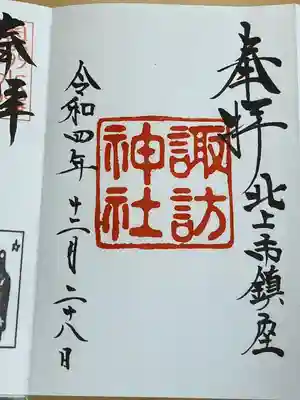 奉拝 北上市鎮座
諏訪
神社
令和四年 十二月 二十八日
奉拝